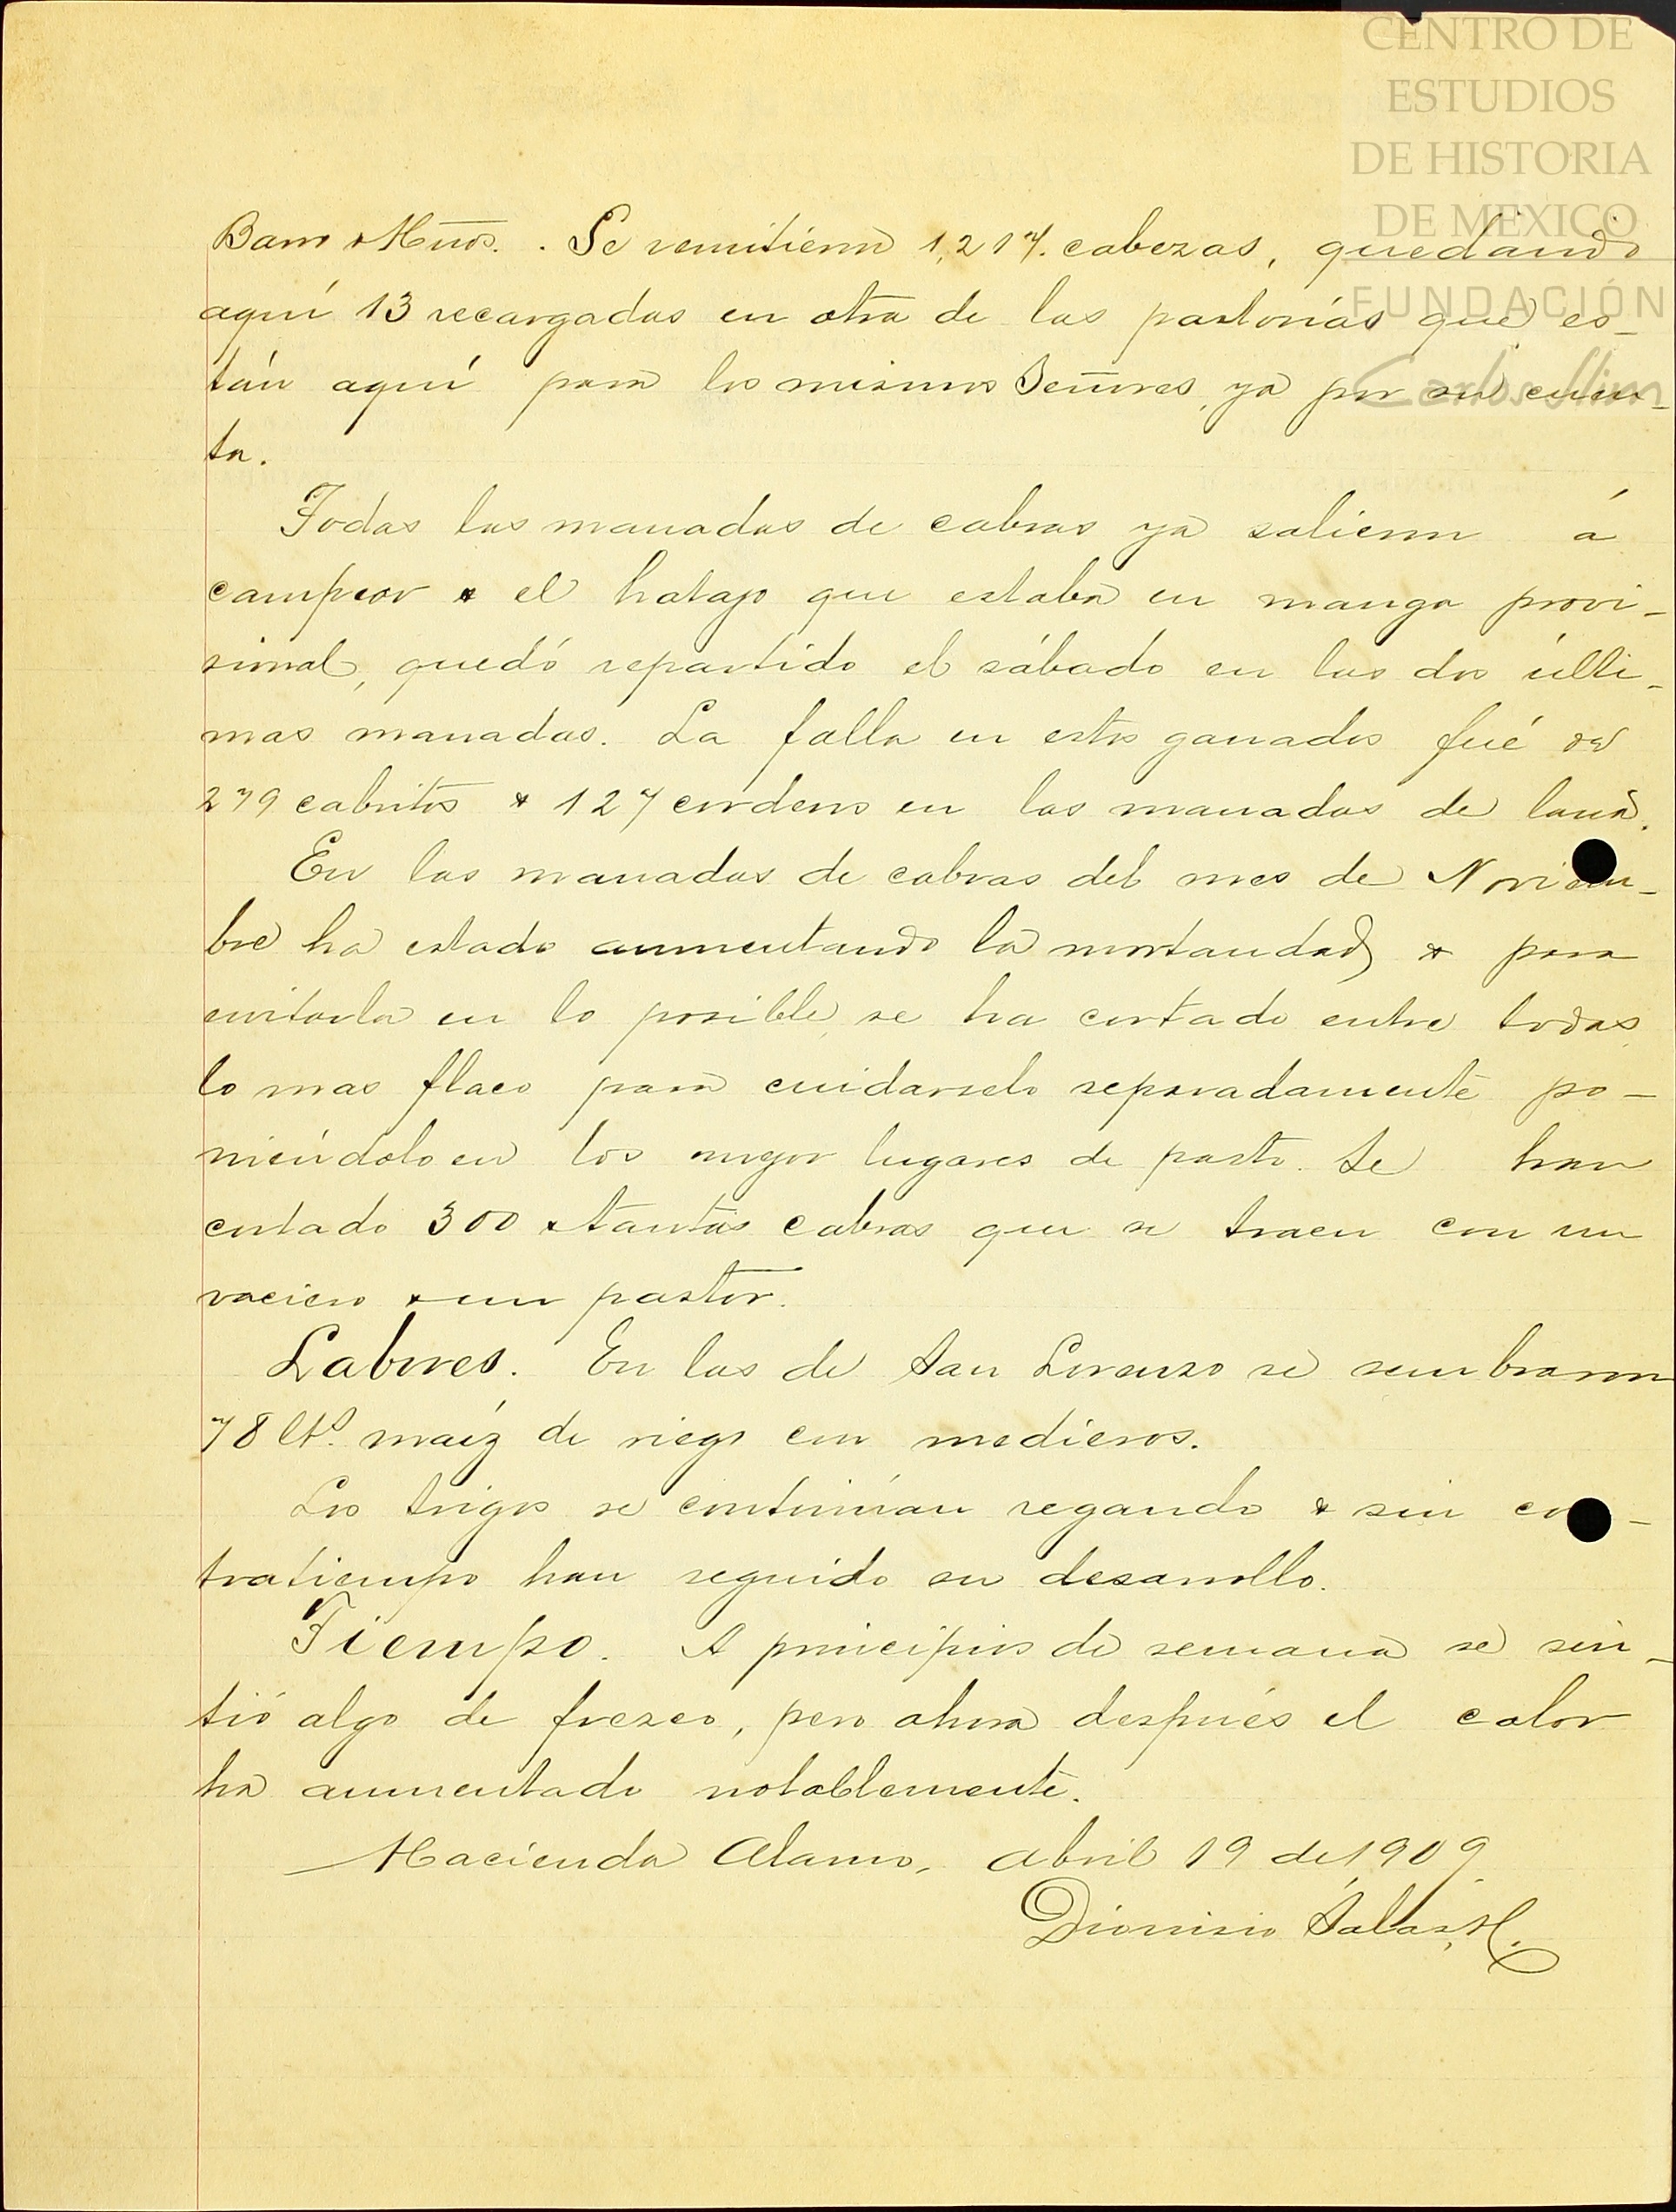 CENTRO DE
ESTUDIOS
DE HISTORIA
DE MEXICO
FUNDACIÓN
Carlos Slim
Barro & Hnos. . Se remitieron 1,217. cabezas, quedando
aquí 13 recargadas en otra de las pastorías que es-
tán aquí para los mismos Señores, ya por su cuen-
ta.
Todas las manadas de cabras ya salieron á
campear & el hatajo que estaba en manga provi-
sional, quedó repartido el sábado en las dos últi-
mas manadas. La falla en estos ganados fué de
279 cabritos & 127 corderos en las manadas de lana.
En las manadas de cabras del mes de Noviem-
bre ha estado aumentando la mortandad & para
evitarla en lo posible, se ha cortado entre todas,
lo mas flaco para cuidarselo separadamente po-
niéndolo en los mejor lugares de pasto. Se han
cortado 300 & tantas cabras que se traen con un
vaciero & un pastor.
Labores. En las de San Lorenzo se sembraron
78 lts. maíz de riego con medieros.
Los trigos se continúan regando & sin con-
tratiempo han seguido su desarrollo.
Tiempo. A principios de semana se sin-
tió algo de frezco, pero ahora después el calor
ha aumentado notablemente.
Hacienda Alamo, Abril 19 de 1909.
Dionisio Salas H.